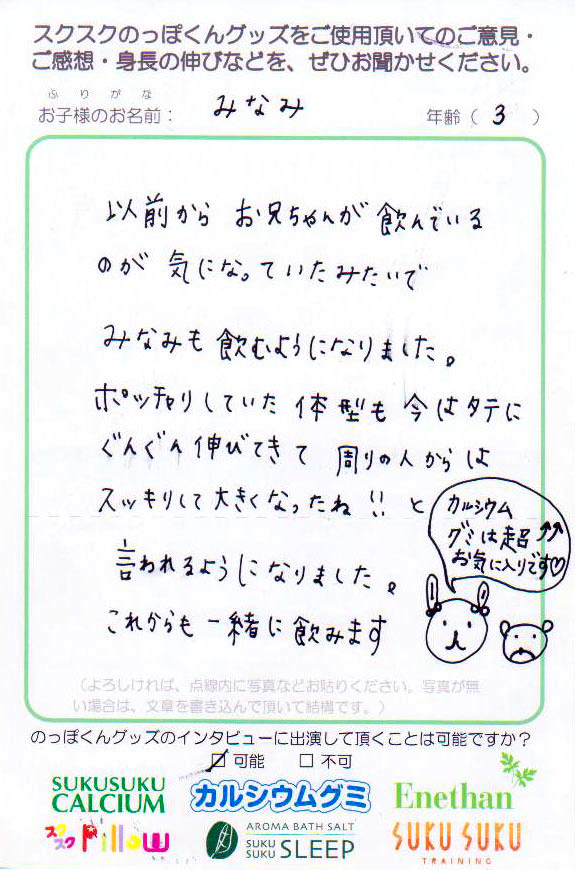 スクスクのっぽくんグッズをご使用頂いてのご意見・
ご感想・身長の伸びなどを、ぜひお聞かせください。
ふりがな
お子様のお名前： みなみ 年齢（ 3 ）
以前から お兄ちゃんが 飲んでいる
のが 気になっていたみたいで
みなみも 飲むようになりました。
ポッチャりしていた 体型も 今はタテに
ぐんぐん伸びてきて 周りの人からは
スッキりして大きくなったね!! と
言われるようになりました。
これからも 一緒に飲みます
カルシウム
グミは超↑↑
お気に入りです♡
（よろしければ、点線内に写真などお貼りください。写真が無
い場合は、文章を書き込んで頂いて結構です。）
のっぽくんグッズのインタビューに出演して頂くことは可能ですか？
☑ 可能 □ 不可
SUKUSUKU
CALCIUM
カルシウムグミ
Enethan
スクスク Pillow
AROMA BATH SALT
SUKU SUKU SLEEP
SUKU SUKU
TRAINING